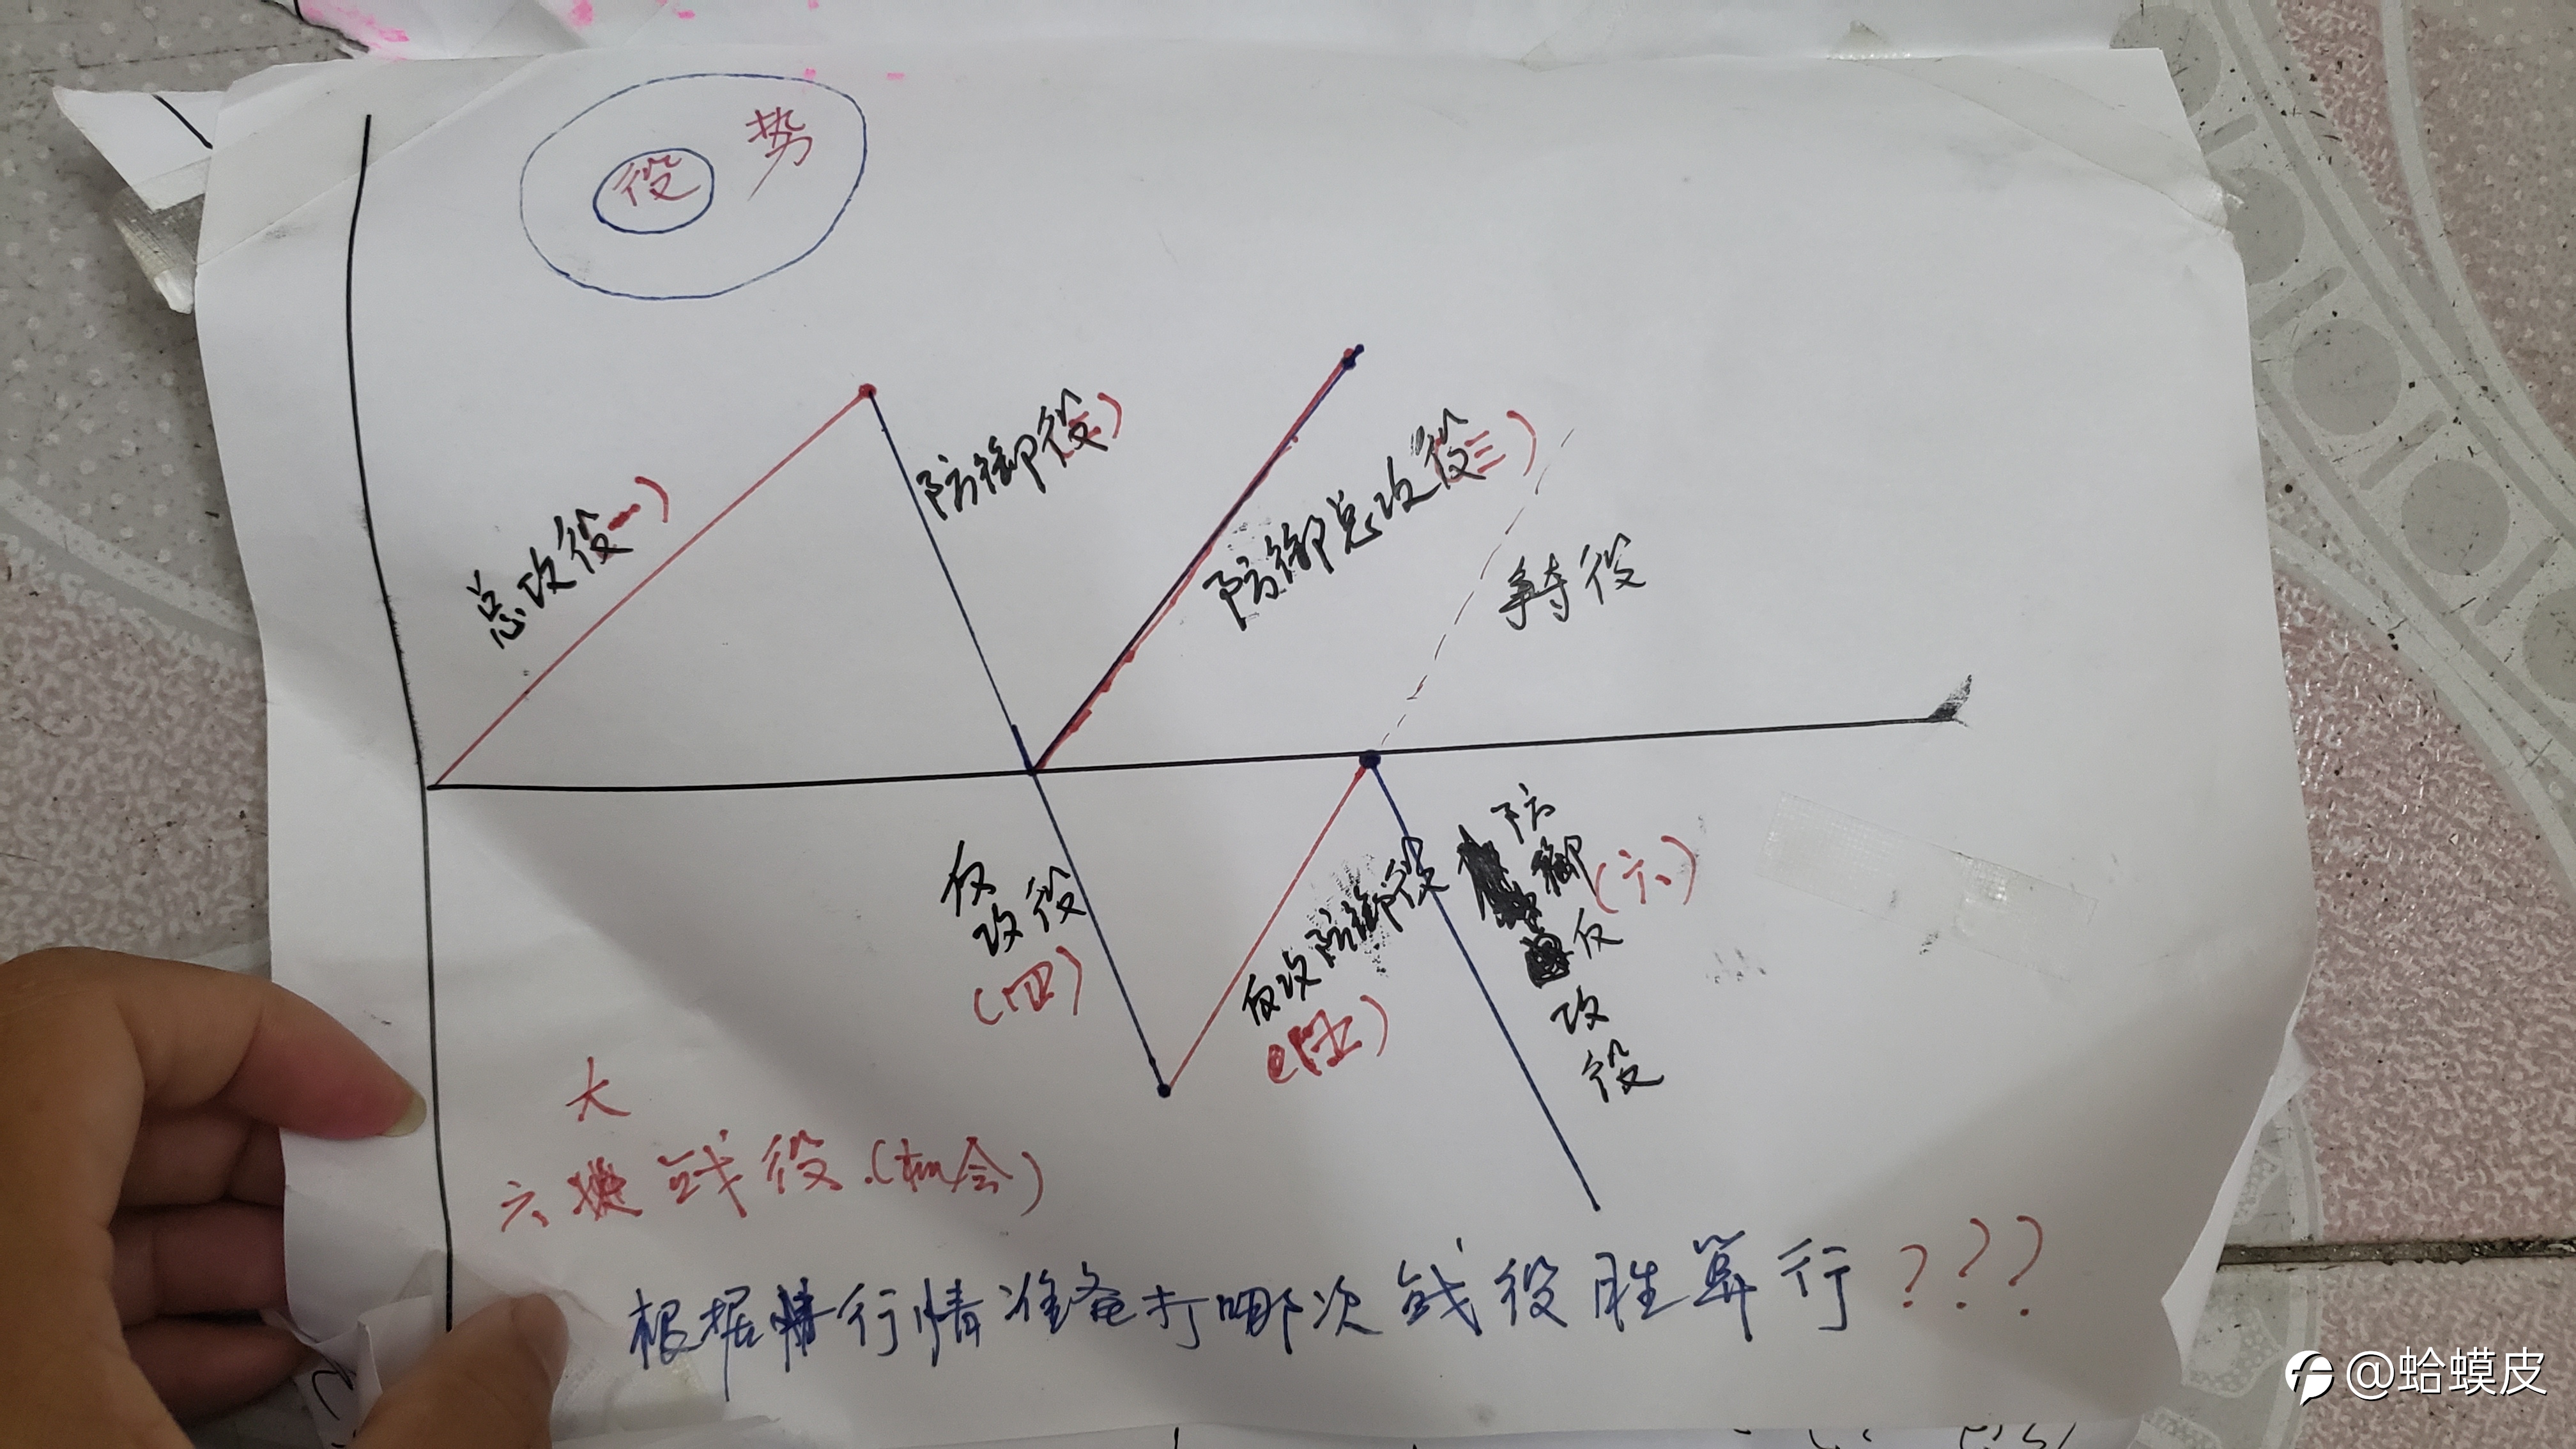 势
役
总攻役(一)
防御役(二)
防御总攻役(三)
争夺役
反攻役
(四)
反攻防御役
(五)
防御反攻役
(六)
六大战役.(机会)
根据行情准备打哪次战役胜算行???
@蛤蟆皮